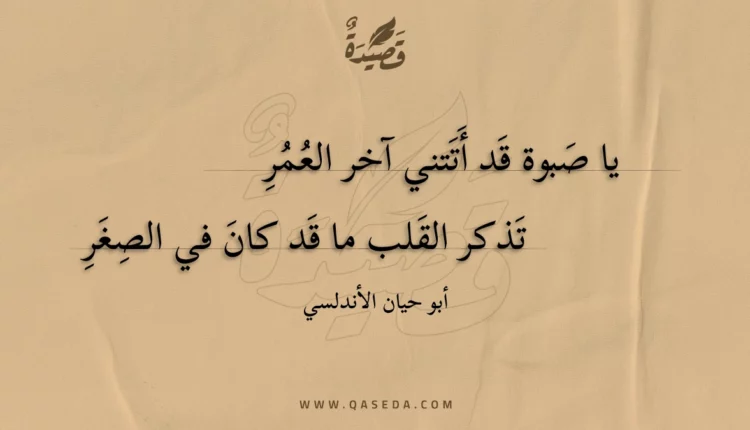 قَصِيْدَةٌ
يا صَبوة قَد أَتَتني آخر العُمُرِ
تَذكر القَلب ما قَد كانَ في الصِغَرِ
أبو حيان الأندلسي
WWW.QASEDA.COM